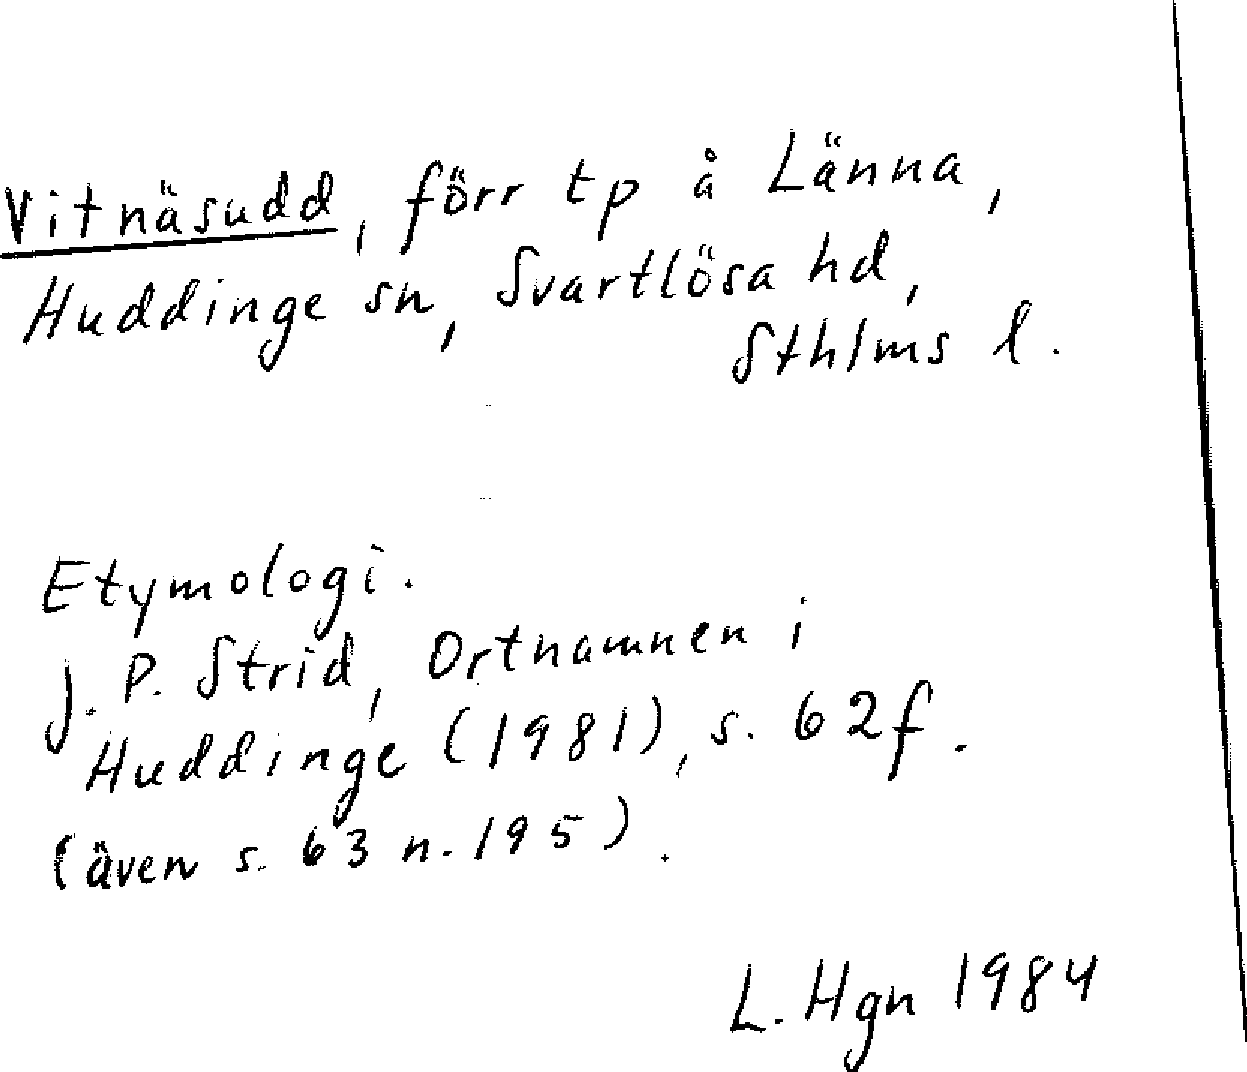 Vitnäsudd, förr tp å Länna,
Huddinge sn, Svartlösa hd,
Sthlms l.
Etymologi.
J. P. Strid, Ortnamnen i
Huddinge (1981), s. 62f.
(även s. 63 n. 195).
L. Hgn 1984